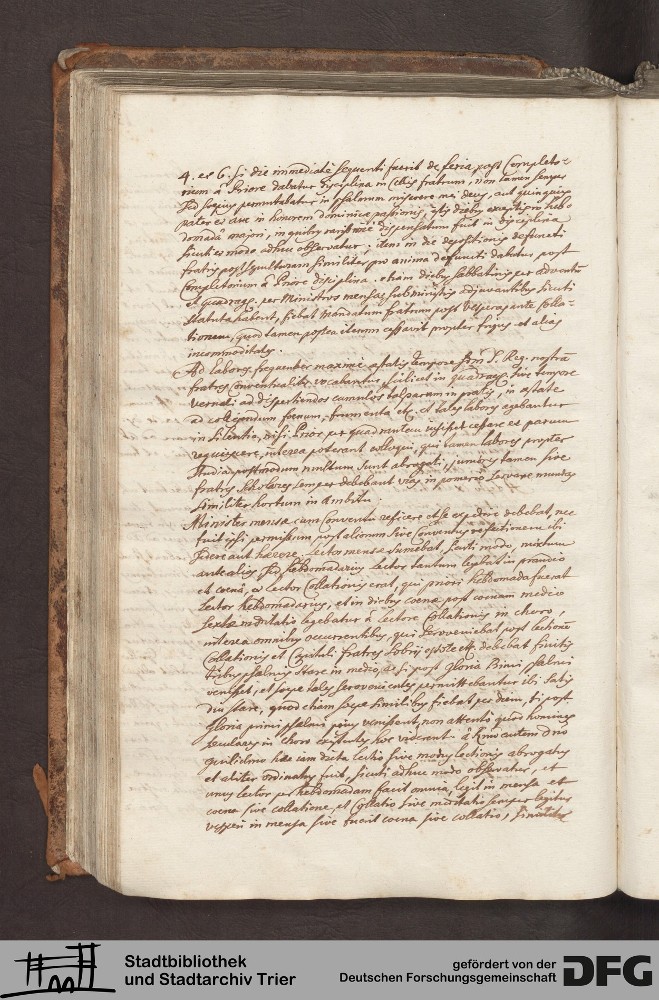 4. et 6. si die immediate sequenti fuerit de feria, post Completo=
rium à Priore dabatur disciplina in Cellis fratrum, non tamen semper
sed sæpius permutabatur in psalmum miserere mei deus, aut quinquies
pater et ave in honorem dominicæ passionis, istis diebus exceptis pro heb=
domada majori, in quibus raris dispensatum fuit in disciplina
sicut et modo adhuc observatur; item in die depositionis defuncti
fratris post sepulturam similiter pro anima defuncti dabatur post
Completorium à Priore disciplina. etiam diebus sabbatinis per adventum
et quadrag. per Ministros mensæ, subministris adjuvantibus sicuti
statuta habent, fiebat Mandatum fratrum post Vesperas ante Colla=
tionem, quod tamen postea iterum cessavit propter frigus et alias
incommoditates.
Ad labores frequenter maxime æstatis tempore Reg. nostram
fratres Conventualiter vocabantur, scilicet in quadrag. sive tempore
vernali ad dispertiendos cumulos talparum in pratis, in æstate
ad colligendum foenum, frumenta etc. et tales labores agebantur
in silentio, nisi Prior per quadrantem jussisset cessare et parum
requiescere, interea poterant colloqui, qui tamen labores propter
studia postmodum multum sunt abrogati; juniores tamen sive
fratres scholares semper debebant vias in pomerio servare mundas
similiter hortum in Ambitu.
Minister mensæ cum Conventu reficere et se expedire debebat, nec
fuit ipsi permissum post aliorum sive Conventus refectionem ibi
sedere aut hærere. Lector mensæ sumebat, sicuti modo, mixtum
ante alios sed hebdomadarius lector tantum legebat in prandio
et coena, et lector Collationis erat, qui priori hebdomada fuerat
lector hebdomadarius, et in diebus coenæ post coenam medio
sextæ meditatio legebatur à lectore Collationis in choro,
interea omnibus occurrentibus, qui serò veniebat post lectionem
Collationis et Capituli fratres debebat finitis
tribus psalmis stare in medio, et si post Gloria Primi psalmi
venisset, et sæpe tales serò venientes permittebantur ibi satis
diu stare, quod etiam sæpe similibus fiebat per diem, si post
Gloria primi psalmi prius venissent, non attento quod homines
seculares in choro existentes hoc viderent. à Rmo autem dno
hæc iam dicta lectio sive modus lectionis abrogatus
et aliter ordinatus fuit, sicuti adhuc modo observatur, et
unus lector per hebdomadam facit omnia, legit in mensa et
coena sive collatione, et Collatio sive meditatio semper legitur
vesperi in mensa sive fuerit coena sive collatio, similiter
Stadtbibliothek
und Stadtarchiv Trier
gefördert von der
Deutschen Forschungsgemeinschaft
DFG